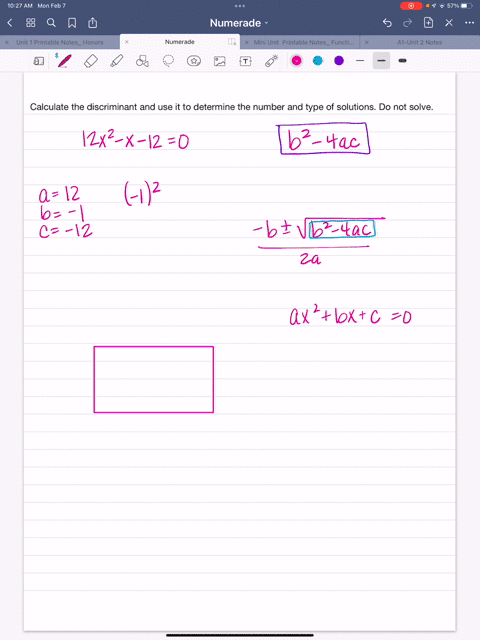 10:27 AM Mon Feb 7
57%
Numerade
Unit 1 Printable Notes_ Honors
Numerade
Mini Unit Printable Notes_ Functi...
A1-Unit 2 Notes
Calculate the discriminant and use it to determine the number and type of solutions. Do not solve.
12x²-x-12=0
b²-4ac
a=12
(-1)²
b=-1
c=-12
-b±√b²-4ac
2a
ax²+bx+c=0